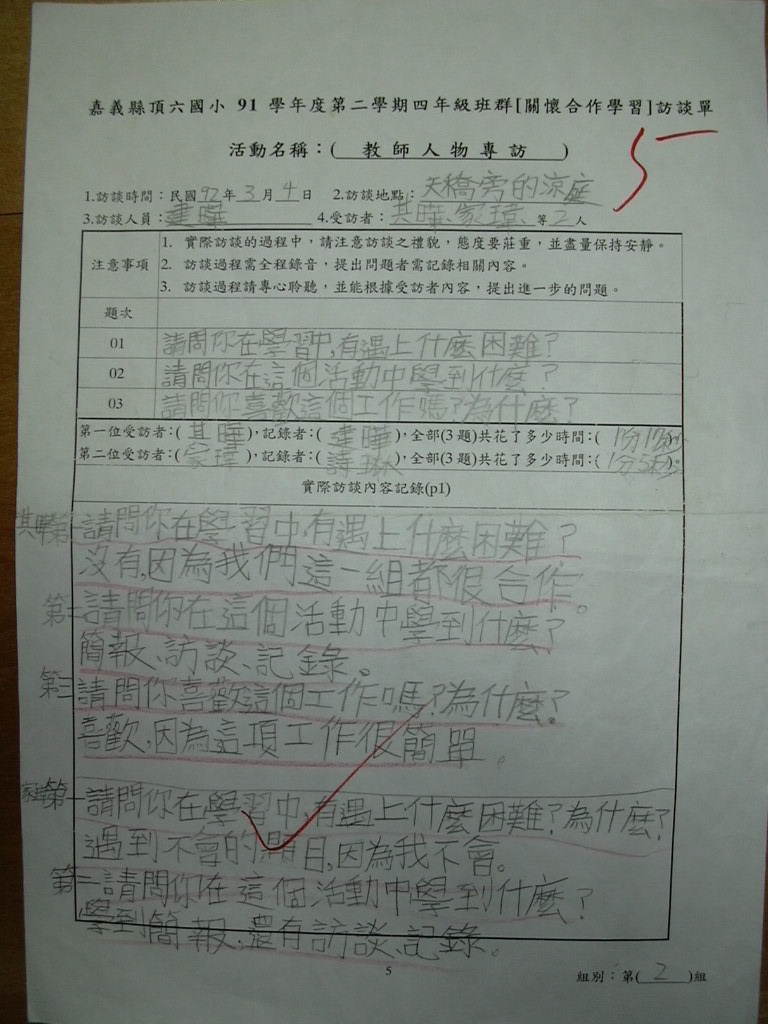 嘉義縣頂六國小 91 學年度第二學期四年級班群[關懷合作學習]訪談單
5
活動名稱：( 教師人物專訪 )
1.訪談時間：民國92年3月4日 2.訪談地點：天橋旁的涼庭
3.訪談人員：建曄 4.受訪者：其曄、家瑋、等2人
注意事項
1. 實際訪談的過程中，請注意訪談之禮貌，態度要莊重，並盡量保持安靜。
2. 訪談過程需全程錄音，提出問題者需記錄相關內容。
3. 訪談過程請專心聆聽，並能根據受訪者內容，提出進一步的問題。
題次
01 請問你在學習中,有遇上什麼困難？
02 請問你在這個活動中學到什麼？
03 請問你喜歡這個工作嗎？為什麼？
第一位受訪者：( 其曄 )，記錄者：( 建曄 )，全部(3題)共花了多少時間：( 1分17秒 )。
第二位受訪者：( 家瑋 )，記錄者：( 詩琳 )，全部(3題)共花了多少時間：( 1分5秒 )。
實際訪談內容記錄(p1)
其曄第一請問你在學習中,有遇上什麼困難？
沒有,因為我們這一組都很合作。
第二請問你在這個活動中學到什麼？
簡報、訪談、記錄。
第三請問你喜歡這個工作嗎？為什麼？
喜歡,因為這項工作很簡單。
家瑋第一請問你在學習中,有遇上什麼困難？為什麼？
遇到不會的題目,因為我不會。
第二請問你在這個活動中學到什麼？
學到簡報、還有訪談、記錄。
5
組別：第( 2 )組